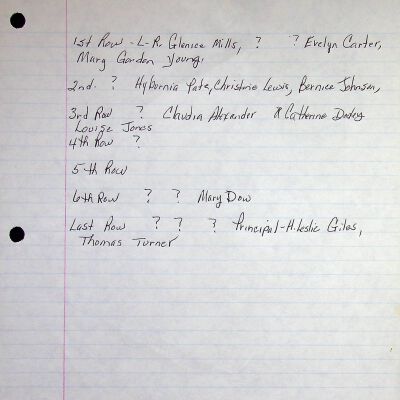 1st Row - L-R. Glenice Mills, ? ? Evelyn Carter,
Mary Gordon Young.
2nd. ? Hybernia Pate, Christine Lewis, Bernice Johnson,
3rd Row ? Claudia Alexander & Catherine
Louise Jones
4th Row ?
5-th Row
6th Row ? ? Mary Dow
Last Row ? ? ? Principal - H. Leslie Giles,
Thomas Turner